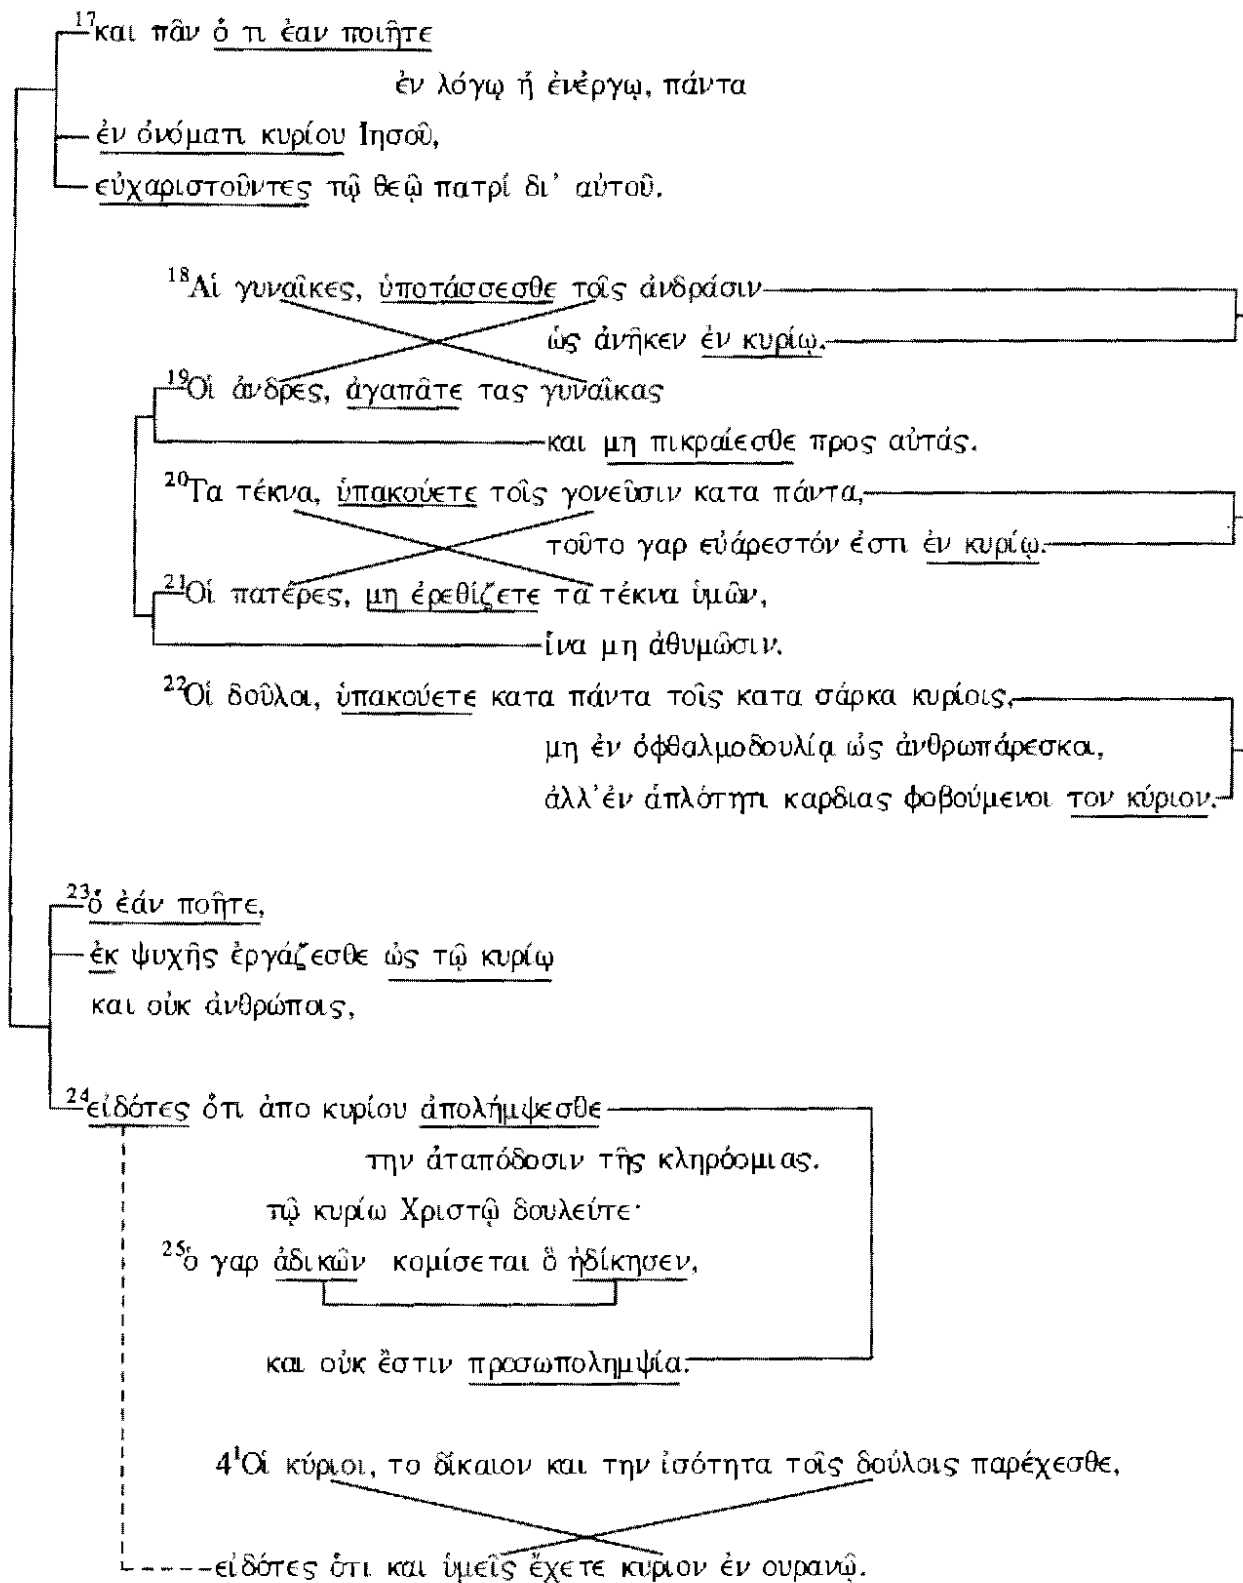 17και πᾶν ὅ τι ἐαν ποιῆτε
ἐν λόγῳ ἤ ἐνέργῳ, πάντα
ἐν ὀνόματι κυρίου Ἰησοῦ,
εὐχαριστοῦντες τῷ θεῷ πατρί δι' αὐτοῦ.
18Αἱ γυναῖκες, ὑποτάσσεσθε τοῖς ἀνδράσιν
ὡς ἀνῆκεν ἐν κυρίῳ.
19Οἱ ἀνδρες, ἀγαπᾶτε τας γυναῖκας
και μη πικραίεσθε προς αὐτάς.
20Τα τέκνα, ὑπακούετε τοῖς γονεῦσιν κατα πάντα,
τοῦτο γαρ εὐάρεστόν ἐστι ἐν κυρίῳ.
21Οἱ πατέρες, μη ἐρεθίζετε τα τέκνα ὑμῶν,
ἵνα μη ἀθυμῶσιν.
22Οἱ δοῦλοι, ὑπακούετε κατα πάντα τοῖς κατα σάρκα κυρίοις,
μη ἐν ὀφθαλμοδουλίᾳ ὡς ἀνθρωπάρεσκοι,
ἀλλ'ἐν ἁπλότητι καρδιας φοβούμενοι τον κύριον.
23ὅ ἐάν ποῆτε,
ἐκ ψυχῆς ἐργάζεσθε ὡς τῷ κυρίῳ
και οὐκ ἀνθρώποις,
24εἰδότες ὅτι ἀπο κυρίου ἀπολήμψεσθε
την ἀταπόδοσιν τῆς κληρόομιας.
τῷ κυρίω Χριστῷ δουλεύτε·
25ὁ γαρ ἀδικῶν κομίσεται ὅ ἠδίκησεν,
και οὐκ ἔστιν προσωπολημψία.
4¹Οἱ κύριοι, το δίκαιον και την ἰσότητα τοῖς δούλοις παρέχεσθε,
εἰδότες ὅτι και ὑμεῖς ἔχετε κυριον ἐν ουρανῷ.